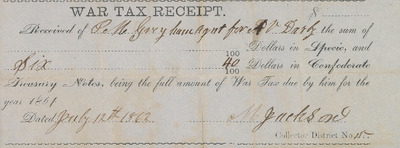 WAR TAX RECEIPT.
$
Received of Agent for A V. Darby the sum of
100 Dollars in Specie, and
Six 40/100 Dollars in Confederate
Treasury Notes, being the full amount of War Tax due by him for the
year 1861
Dated July 12th 1862 M Jackson
Collector District No. 15.